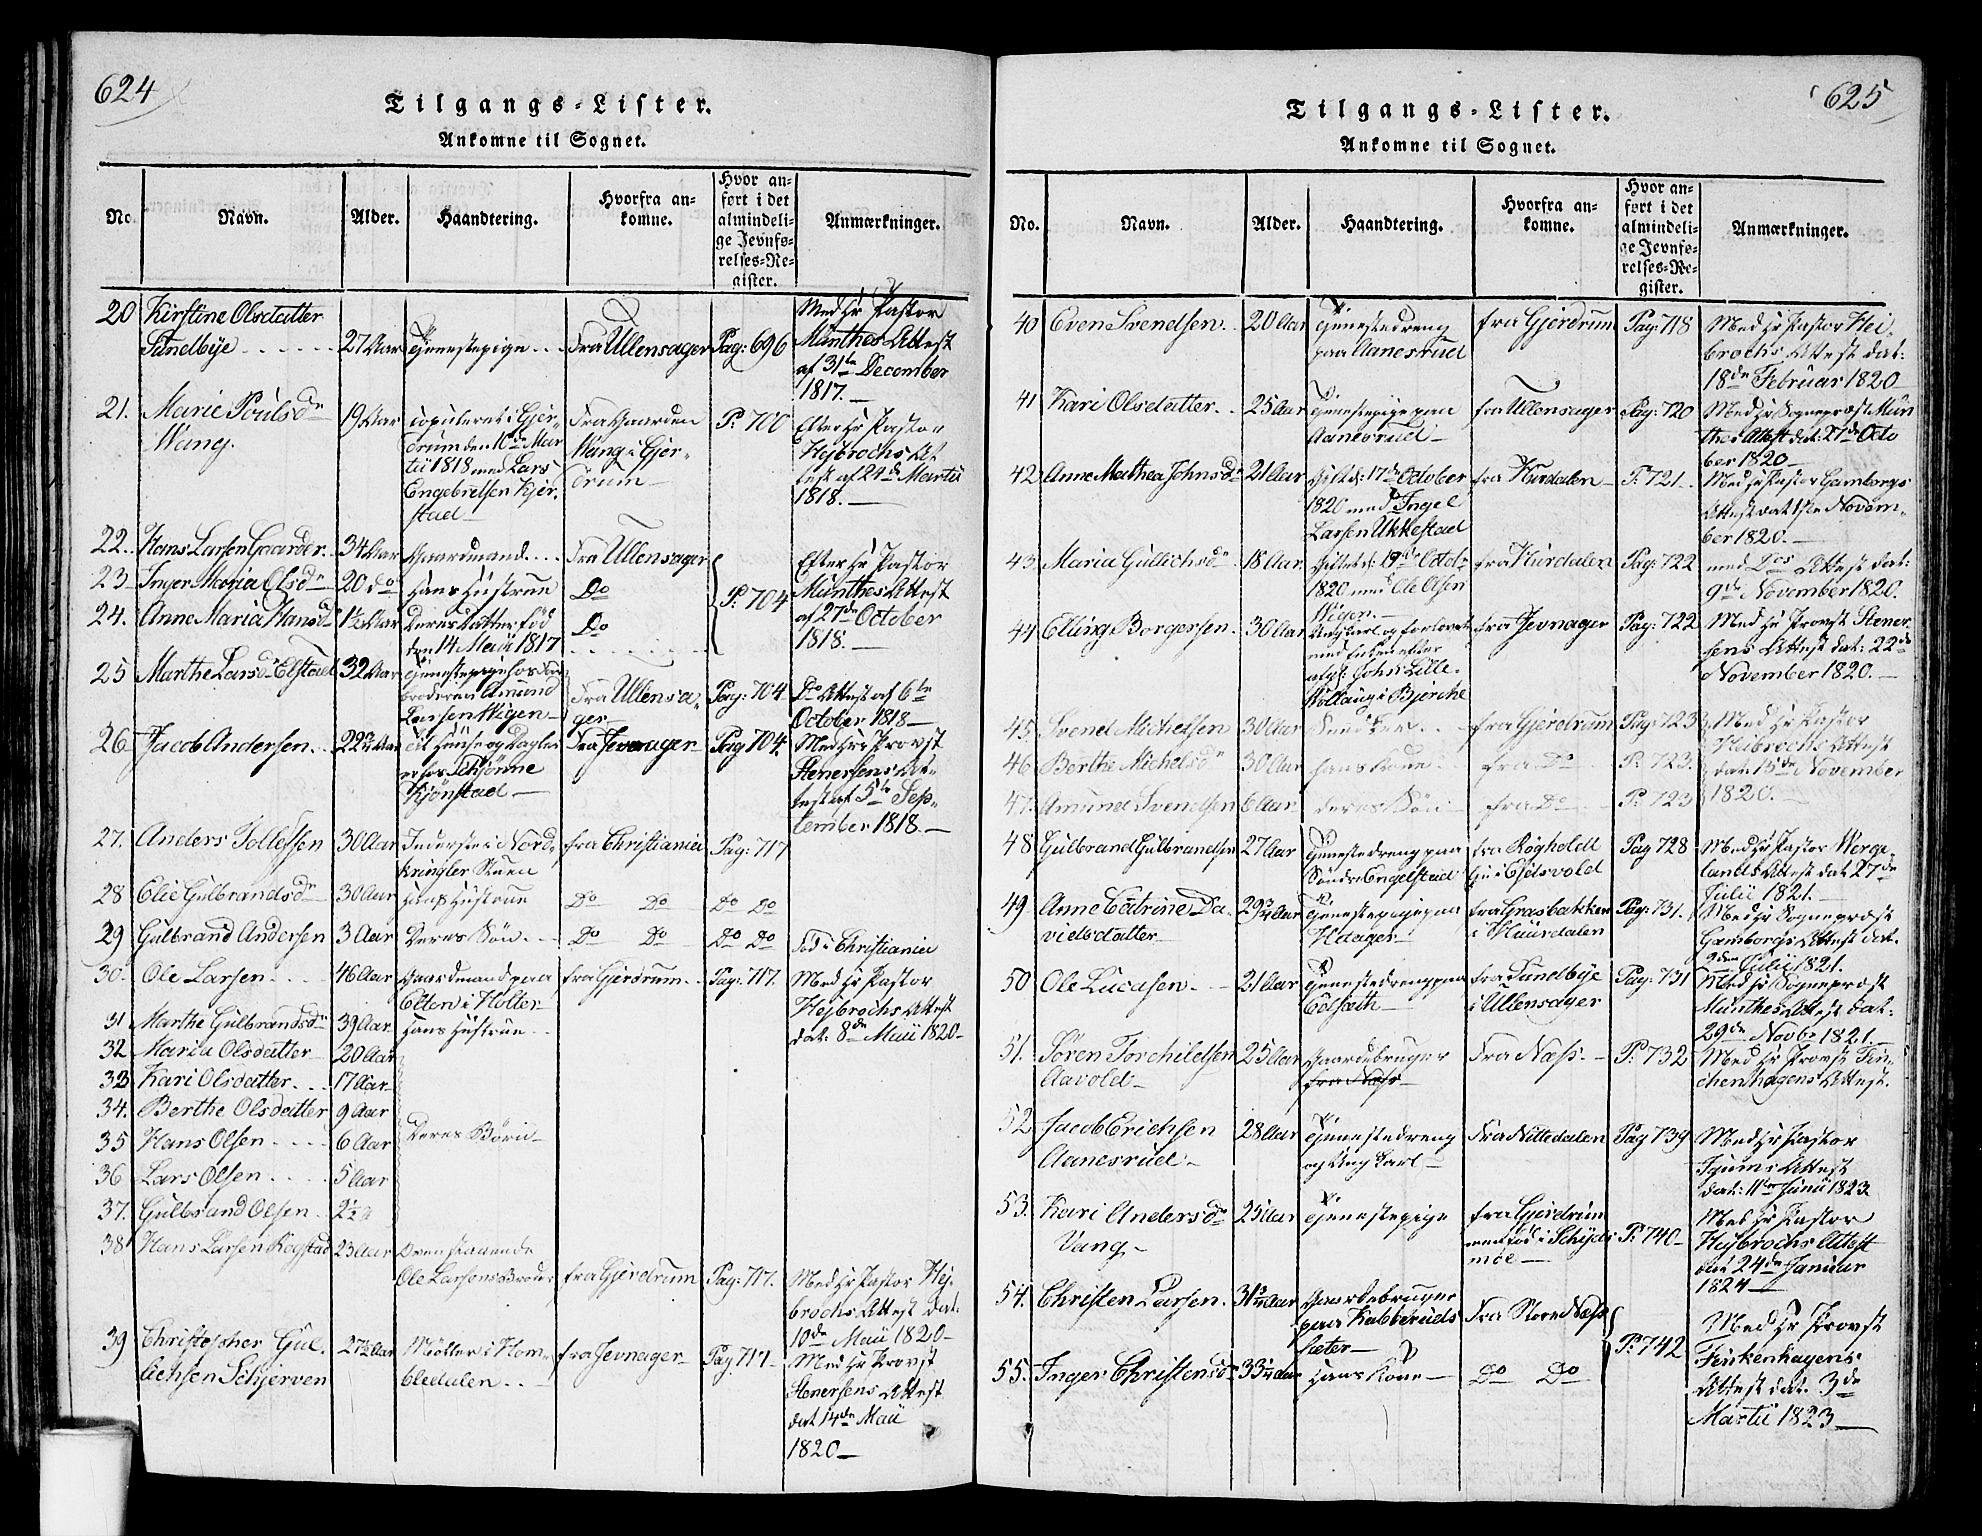 624
Tilgangs-Lister.
Ankomne til Sognet.
No. Navn. Alder. Haandtering. Hvorfra an-
komne. Hvor an-
ført i det
almindeli-
ge Jevnfø-
relses-Re-
gister. Anmærkninger.
20 Kirstine Olsdatter
Sundbÿe 27 Aar Tjenestepige Fra Ullensager Pag: 696 Med Hr Pastor
Munthes Attest
af 31te December
1817.
21. Marie Poulsdr
Wang. 19 Aar copuleret i Gjer-
drum den 10de Mar-
tii 1818 med Lars
Engebretsen Kjer-
stad Fra Gaarden
Wang i Gjer-
drum P. 700 Efter Hr Pastor
Hejbrochs At-
test af 24de Martii
1818.
22. Hans Larsen Gaarder 34 Aar Gaardmand Fra Ullensager
23 Inger Maria Olsdr 20 do Hans Hustrue Do
24. Anne Maria Hansdr 1½ Aar Deres Datter fød
den 14 Maii 1817 Do
P. 704 Efter Hr Pastor
Munthes Attest
af 27de October
1818.
25 Marthe Larsdr Elstad 32 Aar Tjenestepige hos
broderen Amund
Larsen Wigen Fra Ullensa-
ger Pag: 704 Do Attest af 6te
October 1818
26 Jacob Andersen 22¾ Aar
Kjønstad Fra Jevnager Pag 704. Med Hr Provst
Stenersens At-
test af 5te Sep-
tember 1818.
27. Anders Tollefsen 30 Aar Inderste i Nord-
kringler Stuen fra Christiania Pag: 717
28 Elie Gulbrandsdr 30 Aar Hans Hustrue Do Do Do Do
29 Gulbrand Andersen 3 Aar Deres Søn Do Do Do Do Fød i Christiania
30. Ole Larsen 46 Aar Gaardmand paa
Elten i Holter fra Gjerdrum Pag: 717. Med Hr Pastor
Hejbrochs Attest
dat: 8de Maii 1820
31 Marthe Gulbrandsdr 39 Aar Hans Hustrue
32 Maria Olsdatter 20 Aar
33 Kari Olsdatter 17 Aar
34. Berthe Olsdatter 9 Aar
35 Hans Olsen 6 Aar Deres Børn
36 Lars Olsen 5 Aar
37. Gulbrand Olsen 2½
38 Hans Larsen Kogstad 23 Aar Ovenstaaende
Ole Larsens Broder fra Gjerdrum Pag: 717. Med Hr Pastor Hej-
brochs Attest dat:
10de Maii 1820
39 Christopher Gul-
lichsen Schjerven 27½ Aar Møller i Hom-
bledalen fra Jevnager Pag 717 Med Hr Provst
Stenersens Attest
dat 14de Maii
1820
625
Tilgangs-Lister.
Ankomne til Sognet.
No. Navn. Alder. Haandtering. Hvorfra an-
komne. Hvor an-
ført i det
almindeli-
ge Jevnfø-
relses-Re-
gister. Anmærkninger.
40 Even Svendsen 20 Aar Tjenestedreng
paa Aanesrud fra Gjerdrum Pag: 718 Med Hr Pastor Hei-
brochs Attest dat:
18de Februar 1820
41 Kari Olsdatter 25 Aar Tjenestepige paa
Aanesrud fra Ullensager Pag: 720 Med Hr Sognepræst Mun
thes Attest dat: 27de Octo
ber 1820
42 Anne Mathea Johnsdr 21 Aar Gift d: 17de October
1820 med Ingel
Larsen Ukkestad fra Hurdalen P. 721. Med Hr Pastor Gamborgs
Attest dat 1ste Novem-
ber 1820.
43. Maria Gullichsdr 18 Aar 19de Octob:
1820 med Ole Olsen
Wigen fra Hurdalen Pag: 722 med Dos Attest dat:
9de November 1820.
44 Elling Borgersen 30 Aar Ung Karl og forlovet
med Enken efter
afg: John Lille-
Kollaug i Bjerche fra Jevnager Pag: 722 Med Hr Provst Stener
sens Attest dat: 22de
November 1820.
45. Svend Michelsen 30 Aar fra Gjerdrum Pag: 723 Med Hr Pastor
Heibrochs Attest
dat: 15de November
1820.
46 Berthe Michelsdr 30 Aar hans Kone fra Do P. 723.
47. Amund Svendsen 6 Aar deres Søn fra Do P. 723
48 Gulbrand Gulbrandsen 27 Aar Tjenestedreng paa
Søndre Engelstad fra Rogholdt
i Eidsvold Pag 728 Med Hr Pastor Werge-
lands Attest dat 27de
Julii 1821.
49 Anne Catrine Da-
vidsdatter 29¾ Aar Tjenestepige paa
Haager fra Grasbakken
i Huurdalen Pag: 731. Med Hr Sognepræst
Gamborgs Attest dat.
2den Julii 1821.
50 Ole Lucasen 21 Aar Tjenestedreng paa
Eelsæth fra Sundbÿe
i Ullensager Pag: 731 Med Hr Sognepræst
Munthes Attest dat:
29de Novbr 1821.
51. Søren Torchildsen
Aavold 25 Aar Gaardbruger
fra Næss Fra Næss P. 732 Med Hr Provst Fin-
chenhagens Attest.
52 Jacob Erichsen
Aanesrud 28 Aar Tjenestedreng
og Ung Karl Fra Nittedalen Pag 739 Med Hr Pastor
Attest
dat: 11te Junii 1823
53. Kari Andersdr
Vang 25 Aar Tjenestepige fra Gjerdrum
men fød i Schjeds-
moe P. 740 Med Hr Pastor
Hejbrochs Attest
dat 24de Januar
1824
54. Christen Larsen 31¾ Aar Gaardebruger
paa Kabberuds
sæter Fra Store Næss
P. 742 Med Hr Provst
Finkenhagens
Attest dat. 3de
Martii 1823
55. Inger Christensdr 33¼ Aar Hans Kone Do Do